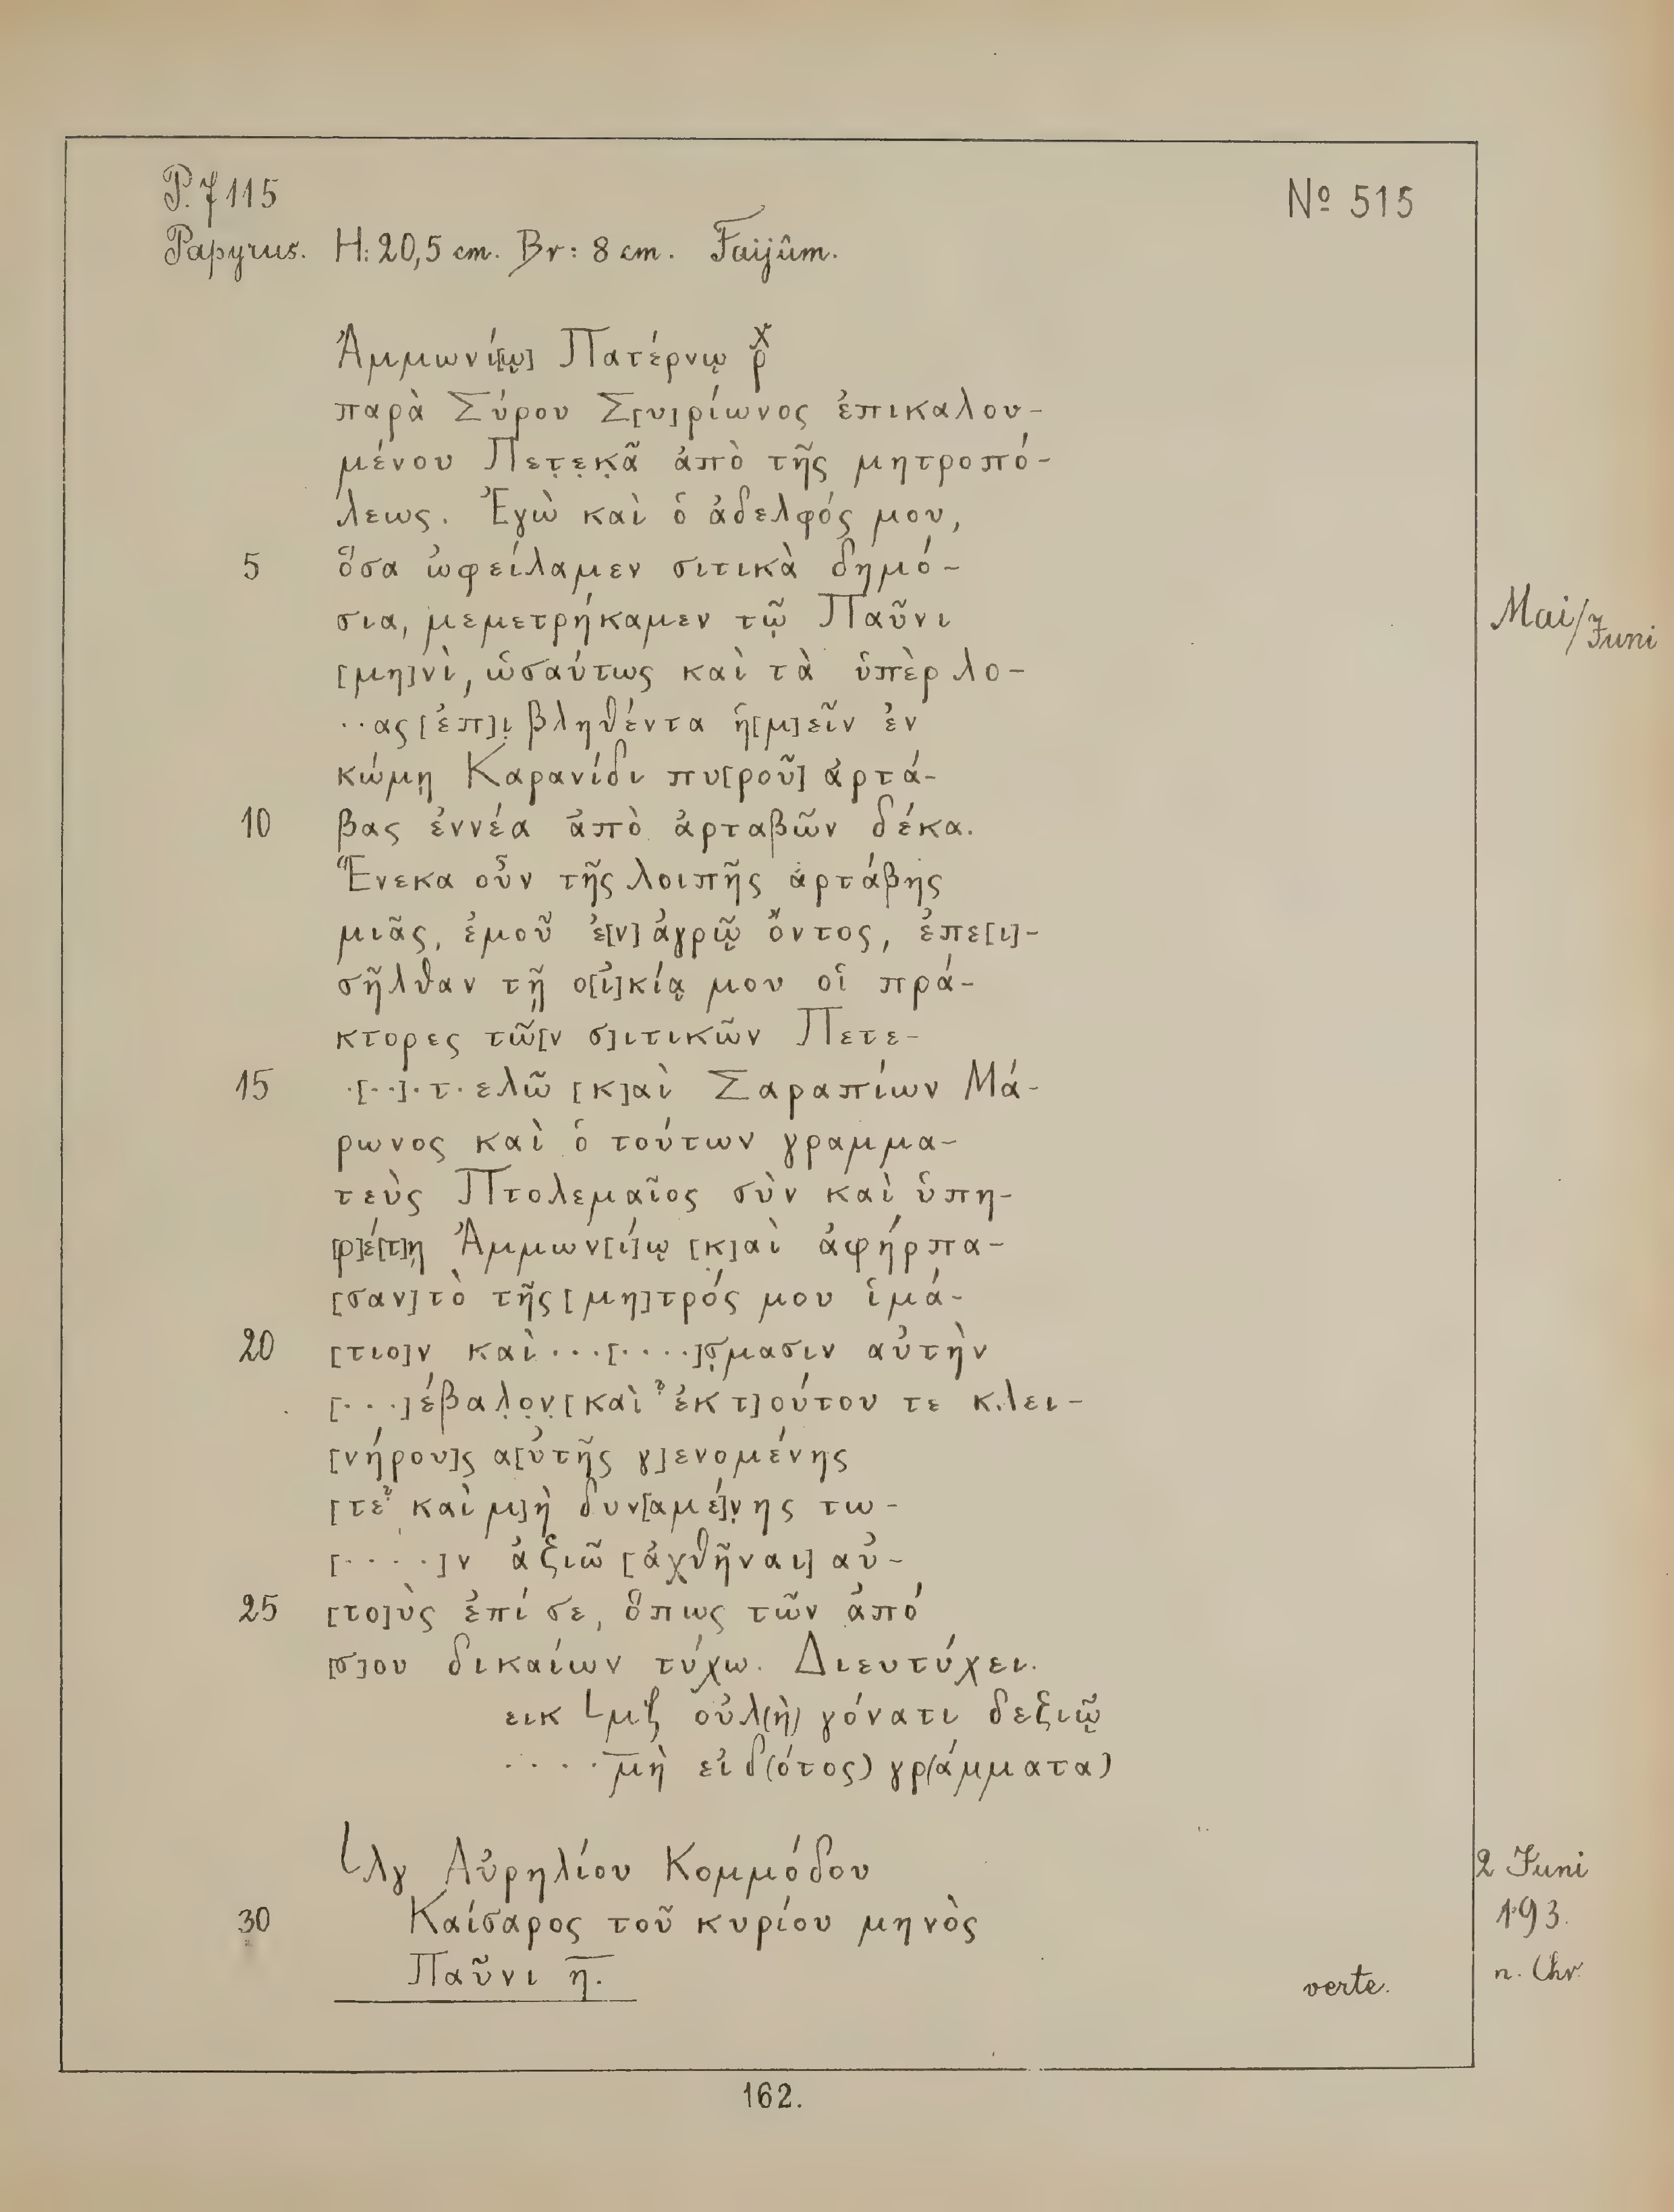 P. 7115
Nº 515
Papyrus. H: 20,5 cm. Br: 8 cm. Faijûm.
Ἀμμωνί[ῳ] Πατέρνῳ ρ̽
παρὰ Σύρου Σ[υ]ρίωνος ἐπικαλου-
μένου Πετ̣ε̣κ̣ᾶ ἀπὸ τῆς μητροπό-
λεως. Ἐγὼ καὶ ὁ ἀδελφός μου,
5 ὅσα ὠφείλαμεν σιτικὰ δημό-
σια, μεμετρήκαμεν τῷ Παῦνι
Mai/Juni
[μη]νὶ, ὡσαύτως καὶ τὰ ὑπὲρ λο-
··ας [ἐπ]ι̣βληθέντα ἡ[μ]εῖν ἐν
κώμῃ Καρανίδι πυ[ροῦ] ἀρτά-
10 βας ἐννέα ἀπὸ ἀρταβῶν δέκα.
Ἕνεκα οὖν τῆς λοιπῆς ἀρτάβης
μιᾶς, ἐμοῦ ἐ[ν] ἀγρῷ ὄντος, ἐπε[ι]-
σῆλθαν τῇ ο[ἰ]κίᾳ μου οἱ πρά-
κτορες τῶ[ν σ]ιτικῶν Πετε-
15 ·[··]·τ·ελῶ [κ]αὶ Σαραπίων Μά-
ρωνος καὶ ὁ τούτων γραμμα-
τεὺς Πτολεμαῖος σὺν καὶ ὑπη-
[ρ]έ[τ]ῃ Ἀμμων[ί]ῳ [κ]αὶ ἀφήρπα-
[σαν] τὸ τῆς [μη]τρός μου ἱμά-
20 [τιο]ν καὶ ···[····]σ̣μασιν αὐτὴν
[···]έβαλ̣ο̣ν̣ [καὶ? ἐκ τ]ούτου τε κλει-
[νήρου]ς α[ὐτῆς γ]ενομένης
[τε? καὶ μ]ὴ δυν[αμέ]ν̣ης τω-
[····]ν ἀξιῶ [ἀχθῆναι] αὐ-
25 [το]ὺς ἐπί σε, ὅπως τῶν ἀπό
[σ]ου δικαίων τύχω. Διευτύχει.
εικ Lμζ οὐλ(ὴ) γόνατι δεξιῷ
····μὴ εἰδ(ότος) γρ(άμματα)
Lλγ Αὐρηλίου Κομμόδου
30 Καίσαρος τοῦ κυρίου μηνὸς
Παῦνι η̅.
2 Juni
193.
n. Chr.
verte.
162.